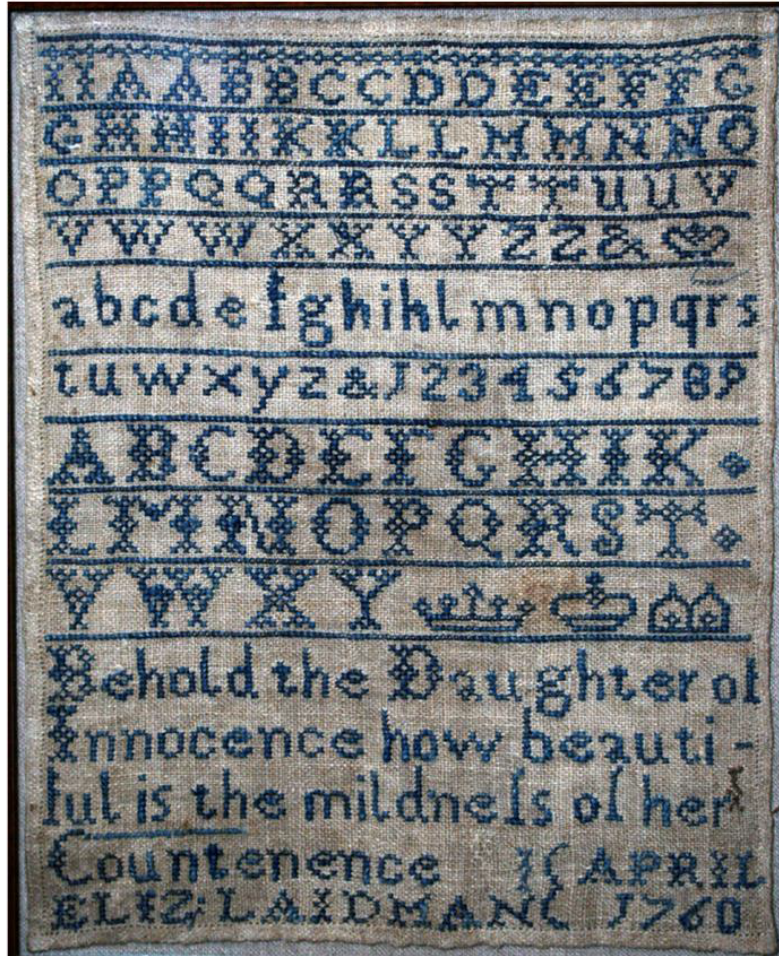 A A B B C C D D E E F F G
G H H I I K K L L M M N N O
O P P Q Q R R S S T T U U V
V W W X X Y Y Z Z &
a b c d e f g h i h l m n o p q r s
t u w x y z & 1 2 3 4 5 6 7 8 9
A B C D E F G H I K
L M N O P Q R S T
V W X Y
Behold the Daughter of
Innocence how beauti-
ful is the mildneſs of her
Countenence APRIL
ELIZ: LAIDMAN 1760